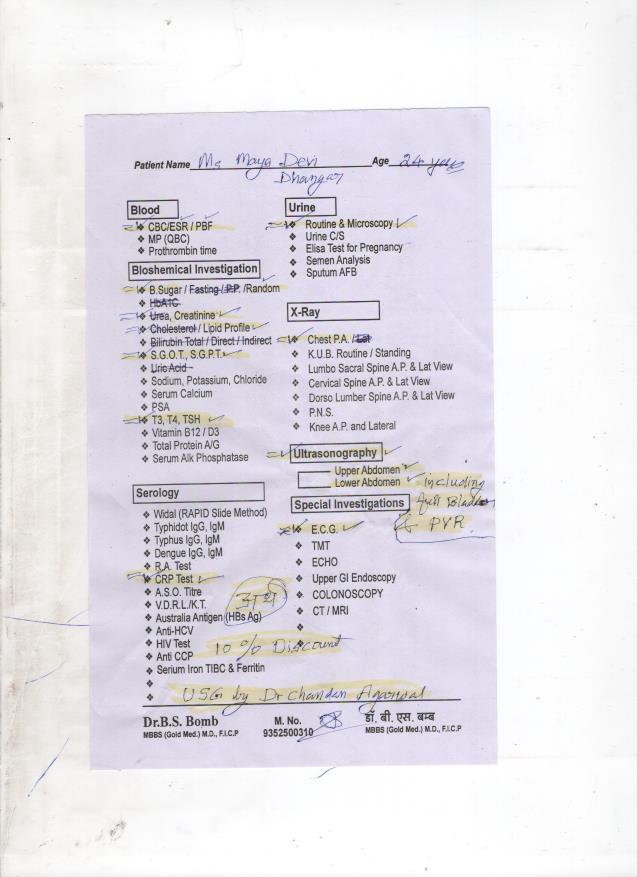 Patient Name Ms Maya Devi Age 24 years
Dhangar
Blood
❖ CBC/ESR / PBF
❖ MP (QBC)
❖ Prothrombin time
Bloshemical Investigation
❖ B.Sugar / Fasting / P.P. /Random
❖ HbA1C
❖ Urea, Creatinine
❖ Cholesterol / Lipid Profile
❖ Bilirubin Total / Direct / Indirect
❖ S.G.O.T., S.G.P.T.
❖ Uric Acid
❖ Sodium, Potassium, Chloride
❖ Serum Calcium
❖ PSA
❖ T3, T4, TSH
❖ Vitamin B12 / D3
❖ Total Protein A/G
❖ Serum Alk Phosphatase
Serology
❖ Widal (RAPID Slide Method)
❖ Typhidot IgG, IgM
❖ Typhus IgG, IgM
❖ Dengue IgG, IgM
❖ R.A. Test
❖ CRP Test
❖ A.S.O. Titre
❖ V.D.R.L./K.T.
❖ Australia Antigen (HBs Ag)
❖ Anti-HCV
❖ HIV Test
❖ Anti CCP
❖ Serium Iron TIBC & Ferritin
Urine
❖ Routine & Microscopy
❖ Urine C/S
❖ Elisa Test for Pregnancy
❖ Semen Analysis
❖ Sputum AFB
X-Ray
❖ Chest P.A. / Lat
❖ K.U.B. Routine / Standing
❖ Lumbo Sacral Spine A.P. & Lat View
❖ Cervical Spine A.P. & Lat View
❖ Dorso Lumber Spine A.P. & Lat View
❖ P.N.S.
❖ Knee A.P. and Lateral
Ultrasonography
Upper Abdomen
Lower Abdomen including
full Bladder
& PVR
Special Investigations
❖ E.C.G.
❖ TMT
❖ ECHO
❖ Upper GI Endoscopy
❖ COLONOSCOPY
❖ CT / MRI
10 % Discount
USG by Dr Chandan Agarwal
Dr.B.S. Bomb M. No. डॉ. बी. एस. बम्ब
MBBS (Gold Med.) M.D., F.I.C.P 9352500310 MBBS (Gold Med.) M.D., F.I.C.P